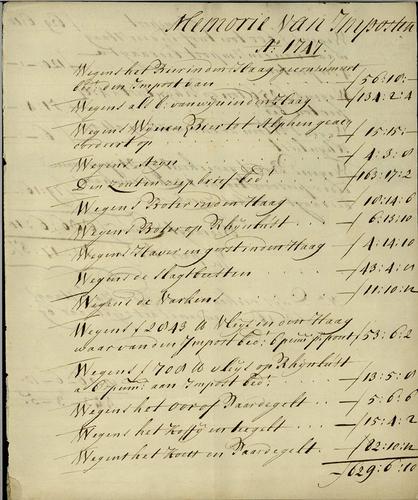 Memorie van Imposten
A: 1747.
Wegens het Bier in den Haag geconsumeert
den Impost van f56:10:
Wegens als b: van wijn in den Haag f134:2:4
Wegens Wijn en Bier tot Alphen
f15:15:
Wegens Azyn f4:3:8
Den zouten bed: f163:17:2
Wegens Boter in den Haag f10:14:6
Wegens Boter op Rhijnlust f6:13:10
Wegens Haver en gerst in den Haag f4:14:10
Wegens de Slagtbeesten f43:4:
Wegens de Varkens f11:10:12
Wegens f 2043 lb vleys in den Haag
waar van den Impost bed: 6 p f53:6:2
Wegens f 708 lb vleys op Rhijnlust
a 6 aan Impost bed: f13:5:8
Wegens het oor of Paardegelt f5:6:6
Wegens het Koffy f15:4:2
Wegens het Koets en Paardegelt f82:10:12
f629:6:10